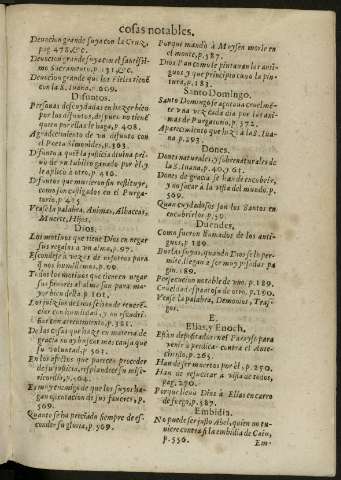 cosas notables.
Deuocion grande suya con la Cruz,
pag. 478. &c.
Deuocion grande suya con el santissi-
mo Sacramento, p. 131. &c.
Deuocion grande que los Fieles tienē
con la S. Iuana, p. 609.
Difuntos.
Personas descuydadas en hazer bien
por los difuntos, despues no tienē
quien por ellas le haga, p. 408.
Agradecimiento de vn difunto con
el Poeta Simonides, p. 303.
Difunto a quiē la justicia diuina pri-
uò de vn Iubileo ganado por èl, y
le aplicò a otro, p. 410.
Difuntos que murieron sin restituyr,
como son castigados en el Purga-
torio, p. 415
Vease la palabra, Animas, Albaceas,
Muerte, Hijos.
Dios.
Los motiuos que tiene Dios en negar
sus regalos a vn alma, p. 97.
Escondese a vezes de nosotros para
q̄ nos humillemos, p. 99.
Todos los motiuos que tiene en negar
sus fauores al alma son para ma-
yor bien della, p. 101.
Los juyzios de Dios se han de reueren-
ciar con humildad, y no escudri-
ñar con atreuimiento, p. 381.
De las cosas que haze en materia de
gracia no ay mas causa que
su voluntad, p. 501.
En los a que parece proceder
de justicia, resplandece su mise-
ricordia, p. 504.
Es muy enemigo de que los suyos ha-
gan ostentacion de sus fauores, p.
509.
Quanto se ha preciado siempre de es-
conder su gloria, p. 569.
Porque mandò a Moysen morir en
el monte, p. 587.
Dios Pan como le pintauan los anti-
guos, y que principio tuuo la pin-
tura, p. 183.
Santo Domingo.
Santo Domingo se açotaua cruelmē-
te vna vez cada dia por las ani-
mas de Purgatorio, p. 372.
Aparecimiento que hizo a la S. Iua-
na p. 293.
Dones.
Dones naturales, y sobrenaturales de
la S. Iuana, p. 40. y 61.
Dones de gracia se hā de encobrir,
y no sacar a la vista del mundo. p.
509.
Quan cuydadosos son los Santos en
encubrirlos. p. 50.
Duendes,
Como fueron llamados de los anti-
guos, p. 189.
Burlas suyas, quando Dios se lo per-
mite, llegan a ser muy pesadas pa
gin. 189.
Persecucion notable de vno, p. 189.
Crueldad espantosa de otro, p. 190.
Vease la palabra, Demonios, Tras-
gos.
E.
Elias, y Enoch.
Estàn depositados en el Parayso para
venir a predicar contra el Ante-
christo, p. 265.
Han de ser muertos por el, p. 250.
Han de resucitar a vista de todos,
pag. 290.
Porque lleuò Dios a Elias en carro
de fuego, p. 587.
Embidia.
No puede ser justo Abel, quien no tu-
uiere contra si la embidia de Cain,
p. 556.
Em-